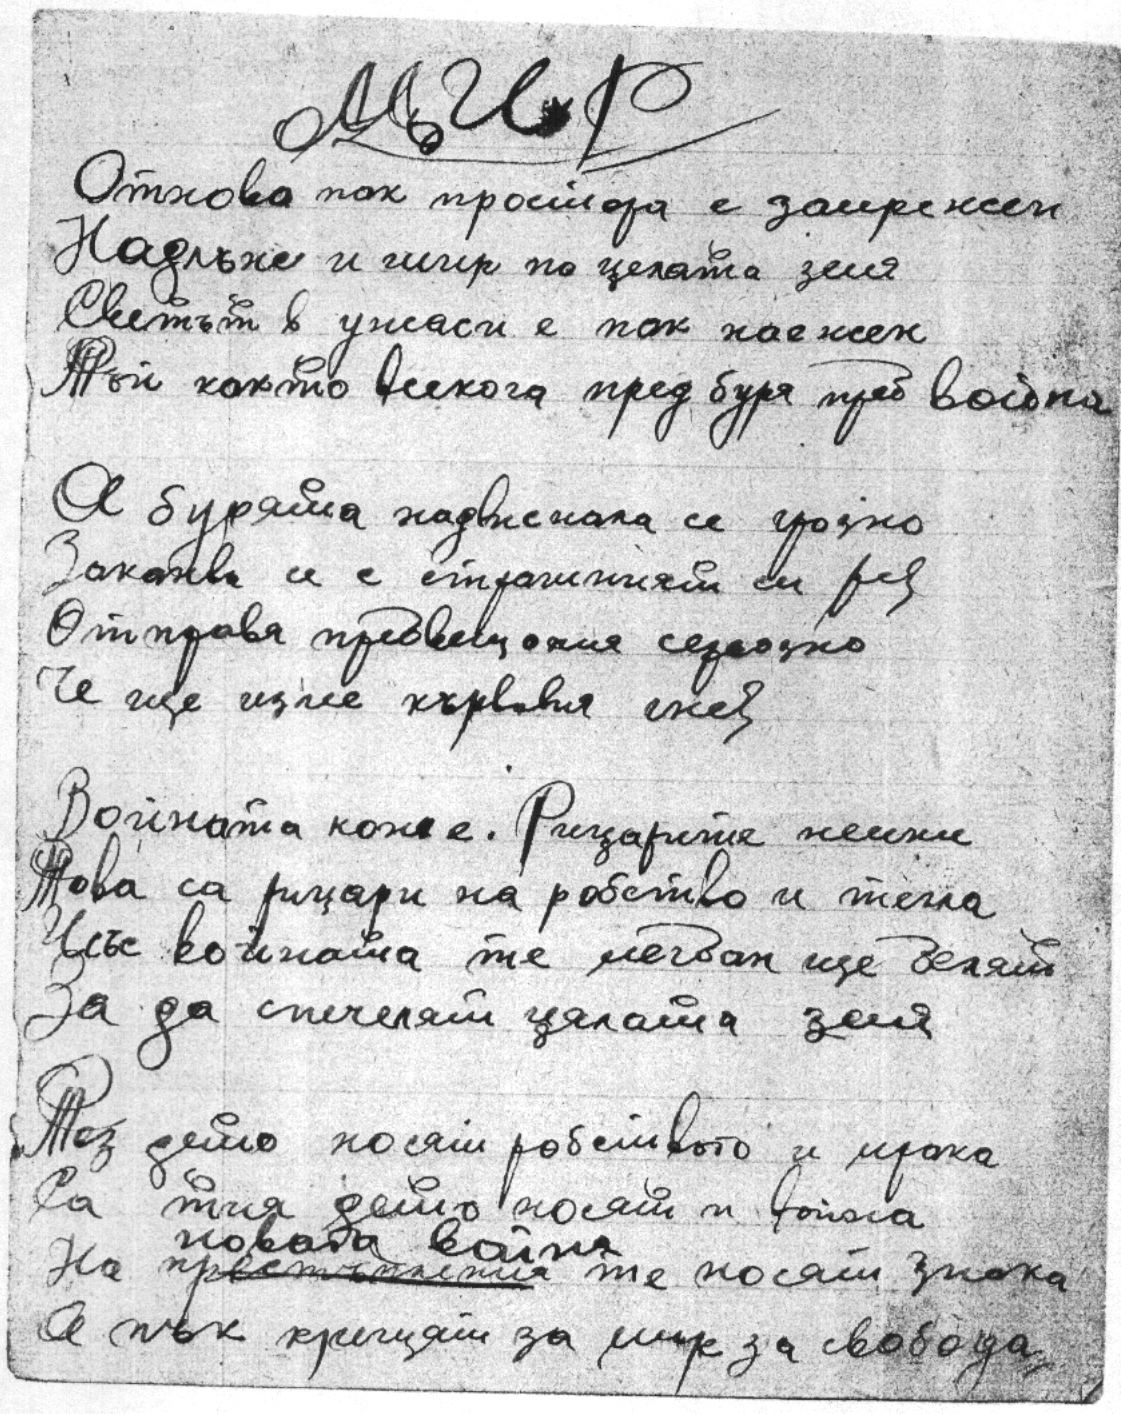 МИР
Отнова пак простора е запрежен
Надлъж и шир по целата земя
Светът в ужаси е пак наежен
Тъй както всякога пред буря пред война
А бурята надвиснала се грозно
Заканва се с страшният си рев
Отправя предвещания сериозно
Че ще излее кървавия гнев
Войната коне е. Рицарите нейни
Това са рицари на робство и тегла
Чрез войната те
За да спечелят цялата земя
Тез дето носят робството и мрака
Са тия дето носят и война
новата война
На престъпления те носят знака
А пък крещят за мир за свобода